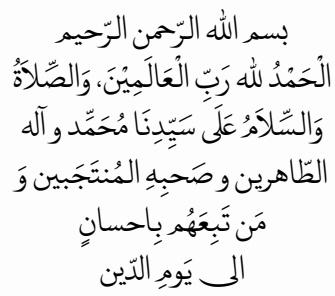 بسم الله الرّحمن الرّحيم
الْحَمْدُ لله رَبِّ الْعَالَمِيْنَ، وَالصَّلاَةُ
وَالسَّلاَمُ عَلَى سَيِّدِنَا مُحَمَّد و آله
الطّاهرين و صَحبِهِ المُنتَجَبين وَ
مَن تَبِعَهُم بِاحسانٍ
الى يَومِ الدّين